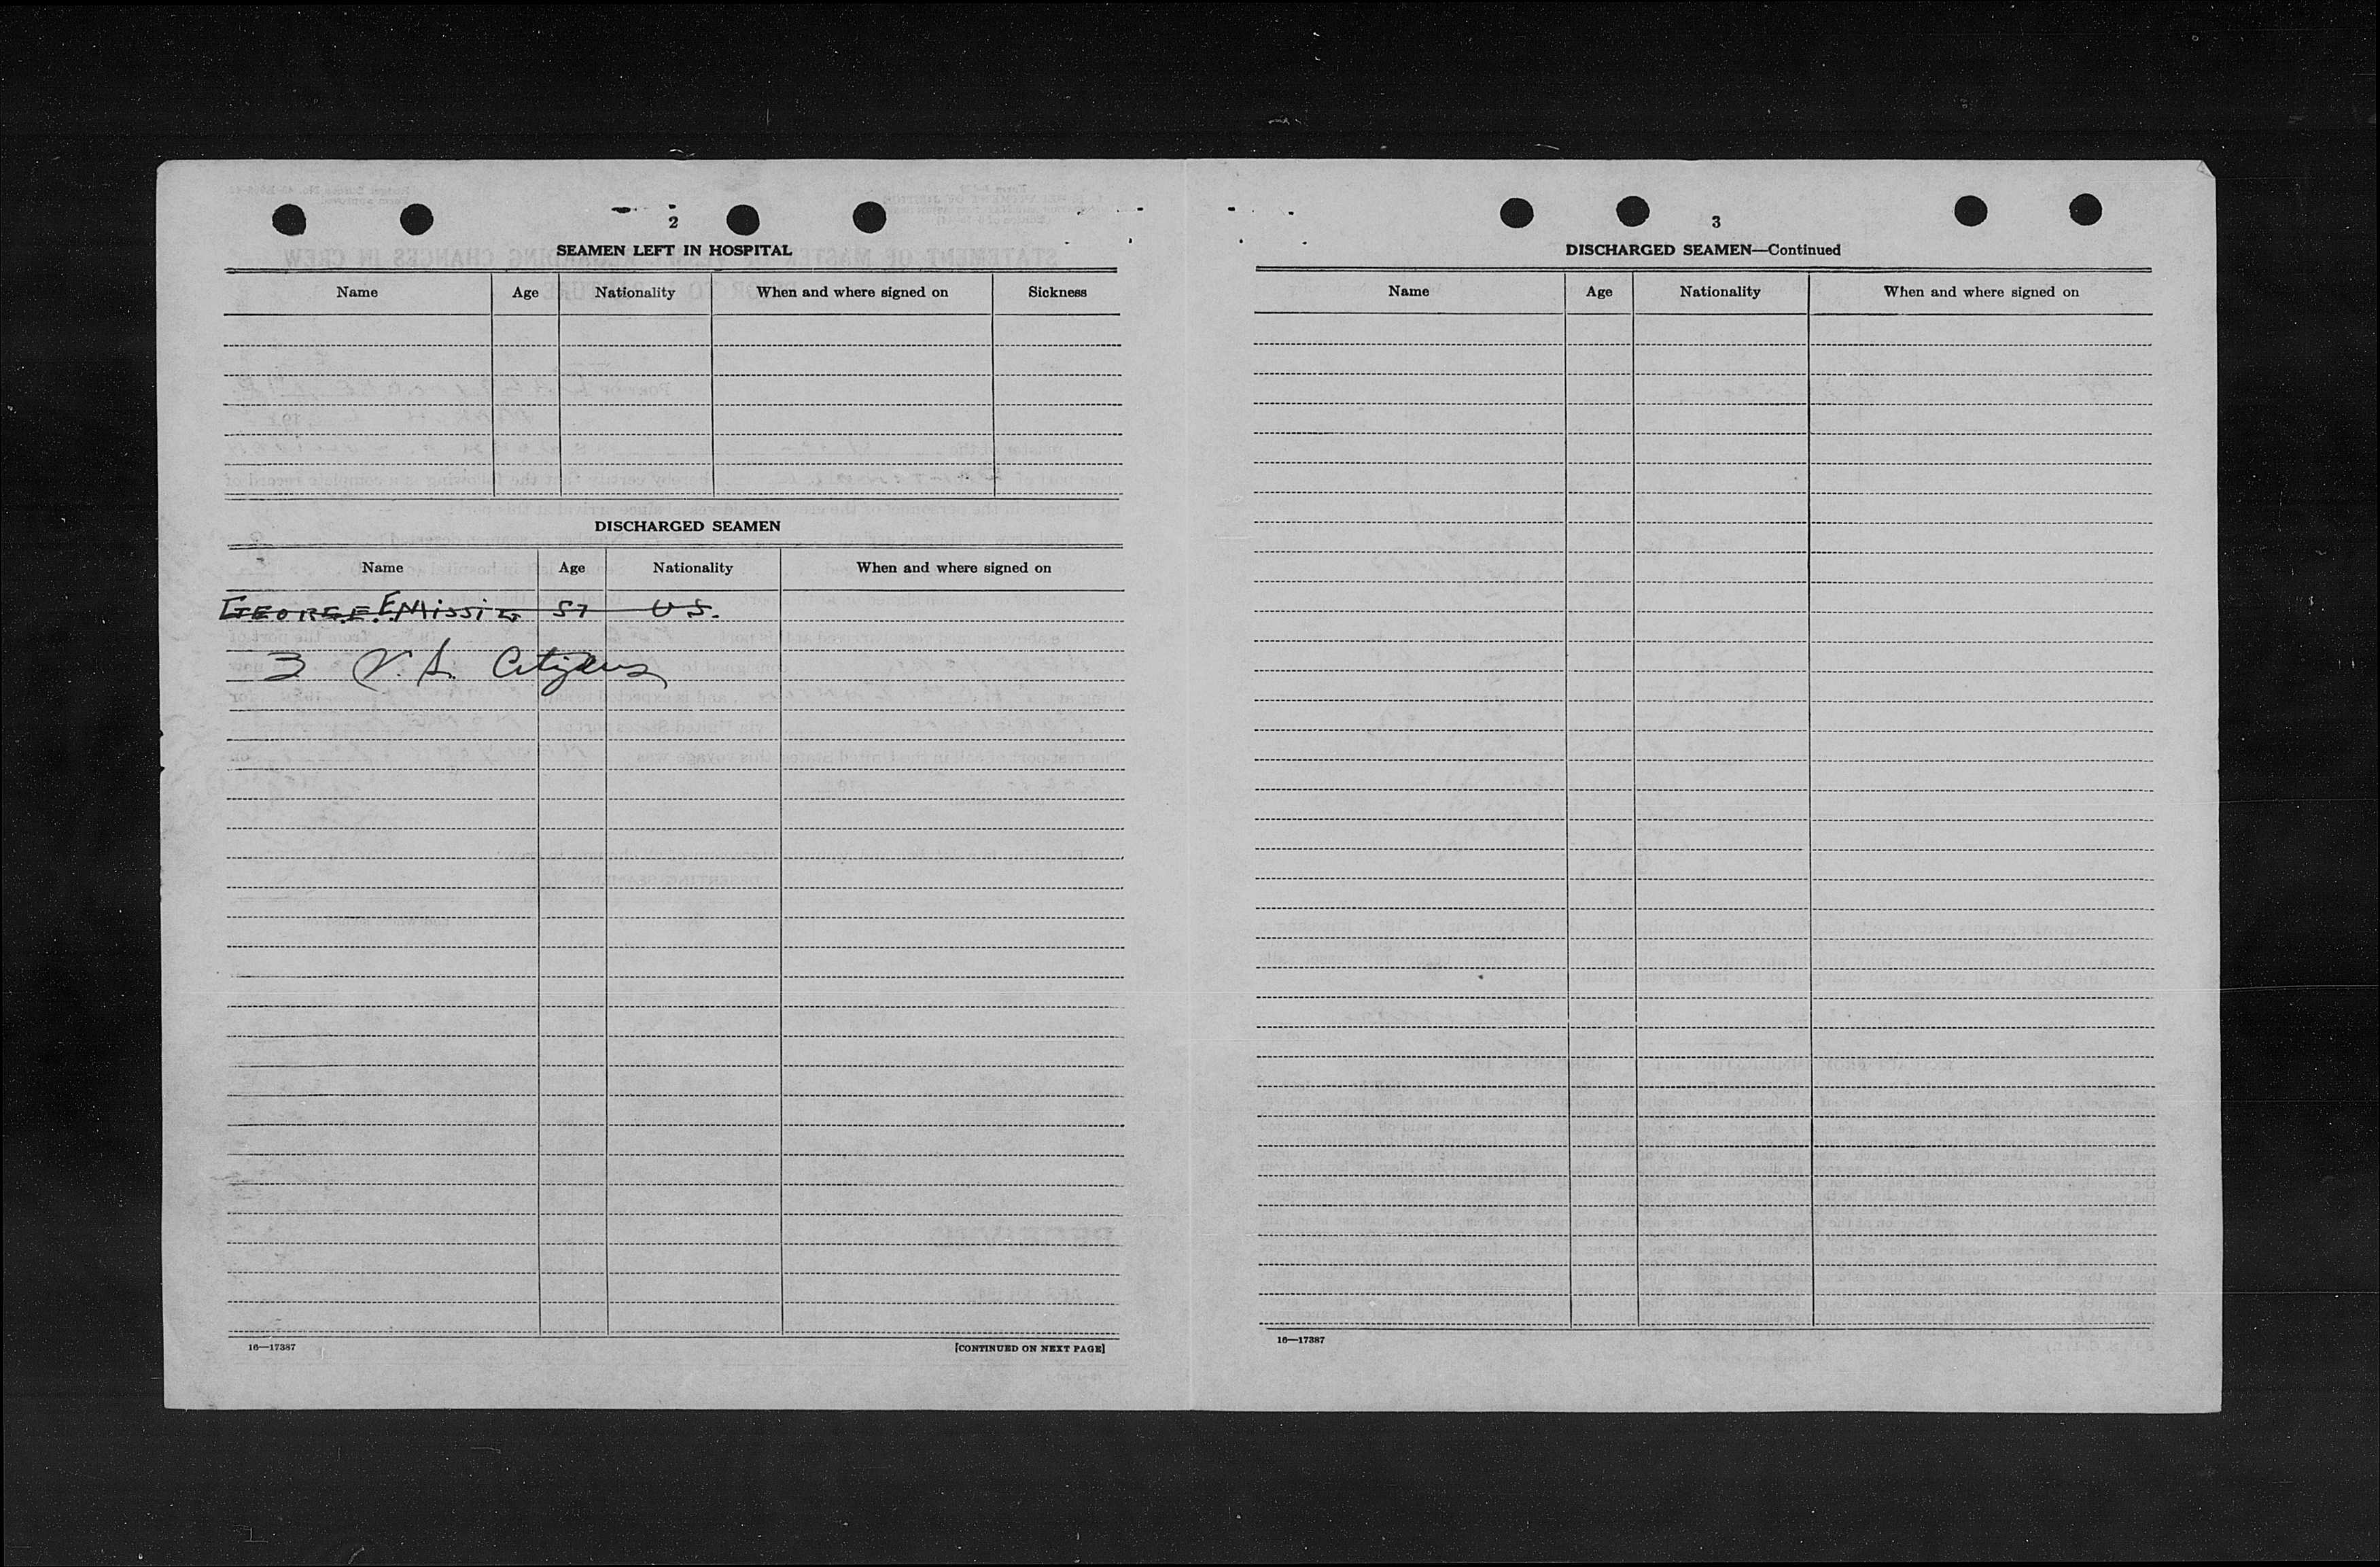 2
SEAMEN LEFT IN HOSPITAL
Name Age Nationality When and where signed on Sickness
DISCHARGED SEAMEN
Name Age Nationality When and where signed on
GEORGE E. 57 U S.
3 U. S. Citizens
16—17387 [CONTINUED ON NEXT PAGE]
3
DISCHARGED SEAMEN—Continued
Name Age Nationality When and where signed on
16—17387